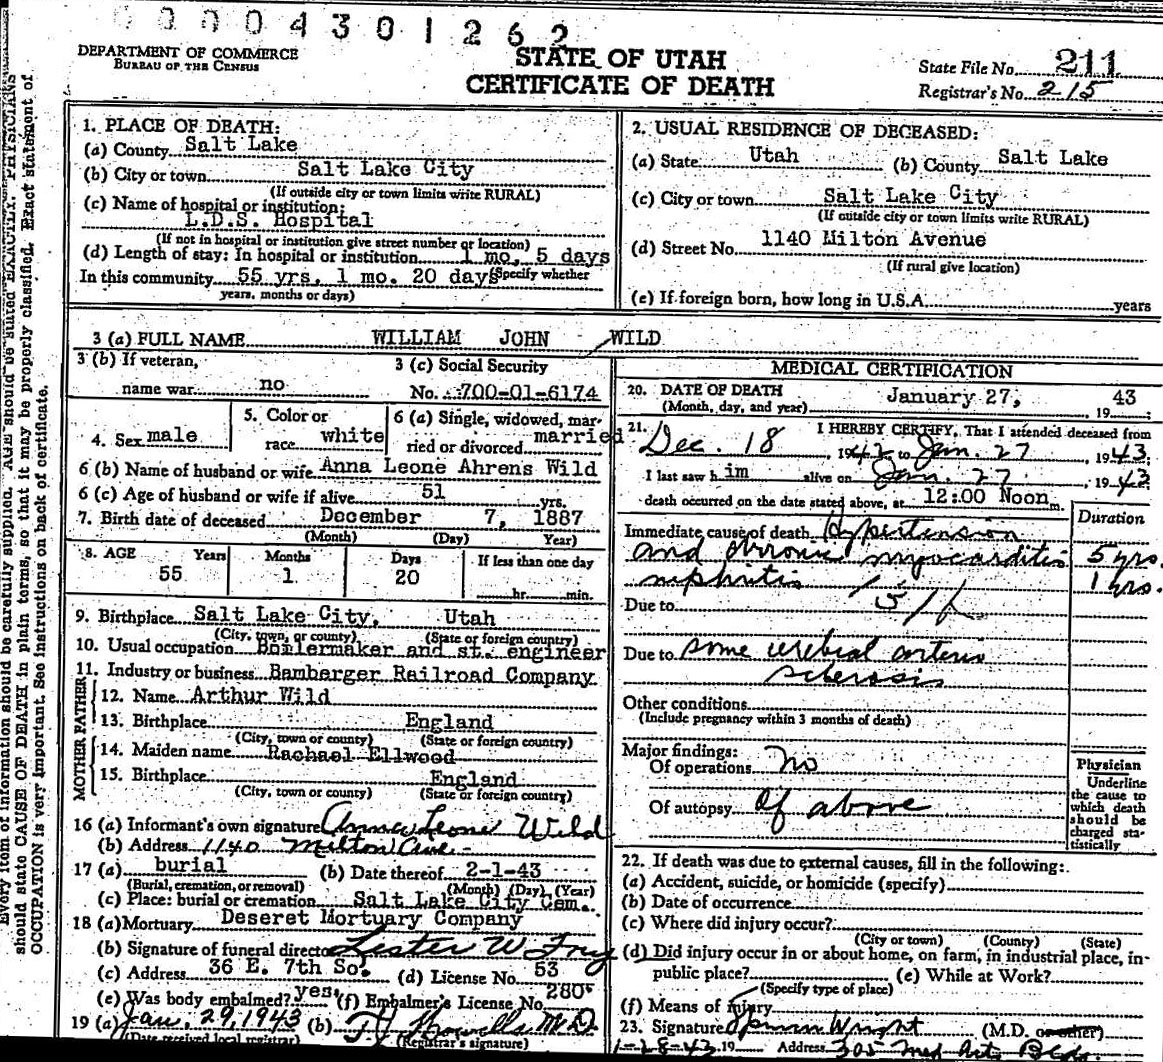 0 0 0 0 4 3 0 1 2 6 2
DEPARTMENT OF COMMERCE
BUREAU OF THE CENSUS
STATE OF UTAH
CERTIFICATE OF DEATH
State File No. 211
Registrar's No. 215
Every item of information should be carefully supplied. AGE should be stated EXACTLY. PHYSICIANS
should state CAUSE OF DEATH in plain terms, so that it may be properly classified. Exact statement of
OCCUPATION is very important. See instructions on back of certificate.
1. PLACE OF DEATH:
(a) County Salt Lake
(b) City or town Salt Lake City
(If outside city or town limits write RURAL)
(c) Name of hospital or institution:
L.D.S. Hospital
(If not in hospital or institution give street number or location)
(d) Length of stay: In hospital or institution 1 mo, 5 days
In this community 55 yrs. 1 mo. 20 days (Specify whether
years, months or days)
2. USUAL RESIDENCE OF DECEASED:
(a) State Utah (b) County Salt Lake
(c) City or town Salt Lake City
(If outside city or town limits write RURAL)
(d) Street No. 1140 Milton Avenue
(If rural give location)
(e) If foreign born, how long in U.S.A. years
3 (a) FULL NAME WILLIAM JOHN WILD
3 (b) If veteran,
name war no
3 (c) Social Security
No. 700-01-6174
4. Sex male
5. Color or
race white
6 (a) Single, widowed, mar-
ried or divorced married
6 (b) Name of husband or wife Anna Leone Ahrens Wild
6 (c) Age of husband or wife if alive 51 yrs.
7. Birth date of deceased December 7, 1887
(Month) (Day) Year)
8. AGE Years Months Days If less than one day
55 1 20 hr. min.
9. Birthplace Salt Lake City, Utah
(City, town, or county) (State or foreign country)
10. Usual occupation Boilermaker and st. engineer
11. Industry or business Bamberger Railroad Company
FATHER
12. Name Arthur Wild
13. Birthplace England
(City, town or county) (State or foreign country)
MOTHER
14. Maiden name Rachael Ellwood
15. Birthplace England
(City, town or county) (State or foreign country)
16 (a) Informant's own signature Anna Leone Wild
(b) Address 1140 Milton Ave
17 (a) burial (b) Date thereof 2-1-43
(Burial, cremation, or removal) (Month) (Day) (Year)
(c) Place: burial or cremation Salt Lake City Cem.
18 (a) Mortuary Deseret Mortuary Company
(b) Signature of funeral director Lester W Fry
(c) Address 36 E. 7th So. (d) License No. 53
(e) Was body embalmed? yes. (f) Embalmer's License No. 280
19 (a) Jan. 29, 1943 (b) M.D.
(Date received local registrar) (Registrar's signature)
MEDICAL CERTIFICATION
20. DATE OF DEATH January 27, 1943
(Month, day, and year)
21. I HEREBY CERTIFY, That I attended deceased from
Dec. 18, 1942 to Jan. 27, 1943.
I last saw him alive on Jan. 27, 1943
death occurred on the date stated above, at 12:00 Noon m.
Duration
Immediate cause of death Hypertension
and chronic myocarditis 5 yrs.
nephritis 1 yrs.
Due to
Due to some cerebial arterio
sclerosis
Other conditions
(Include pregnancy within 3 months of death)
Major findings:
Of operations no
Of autopsy Of above
Physician
Underline
the cause to
which death
should be
charged sta-
tistically
22. If death was due to external causes, fill in the following:
(a) Accident, suicide, or homicide (specify)
(b) Date of occurrence
(c) Where did injury occur?
(City or town) (County) (State)
(d) Did injury occur in or about home, on farm, in industrial place, in-
public place? (e) While at Work?
(Specify type of place)
(f) Means of injury
23. Signature Wright (M.D. or other)
1-28-43 19 Address 305 Med Arts Bldg.